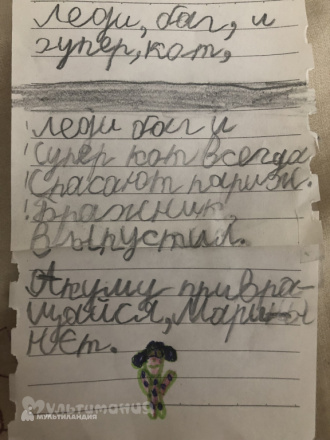 леди, баг, и
супер, кот,
леди баг и
Супер кот всегда
Спасают париж.
Бражник
Выпустил.
Акуму привра-
щайся, Мари
нет.
Мультимания
МУЛЬТИЛАНДИЯ